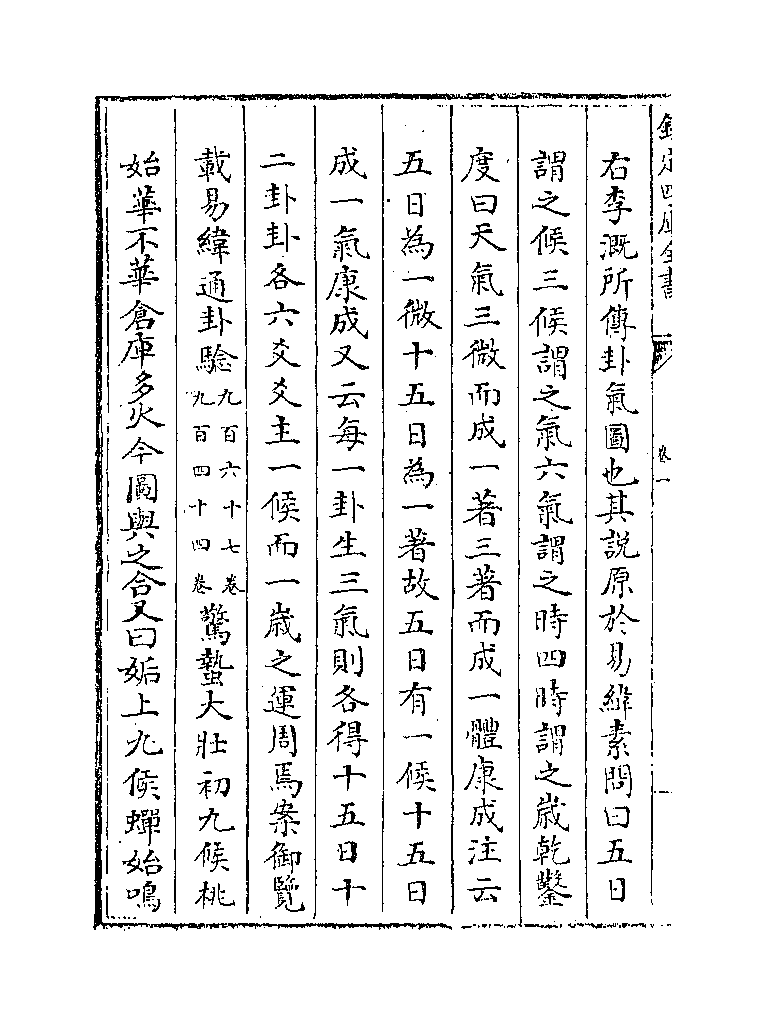 欽定四庫全書
卷一
右李溉所傳卦氣圖也其説原於易緯素問曰五日
謂之候三候謂之氣六氣謂之時四時謂之歲乾鑿
度曰天氣三微而成一著三著而成一體康成注云
五日為一微十五日為一著故五日有一候十五日
成一氣康成又云每一卦生三氣則各得十五日十
二卦卦各六爻爻主一候而一歲之運周焉案御覽
載易緯通卦驗九百六十七卷九百四十四卷驚蟄大壯初九候桃
始華不華倉庫多火今圖與之合又曰姤上九候蟬始鳴